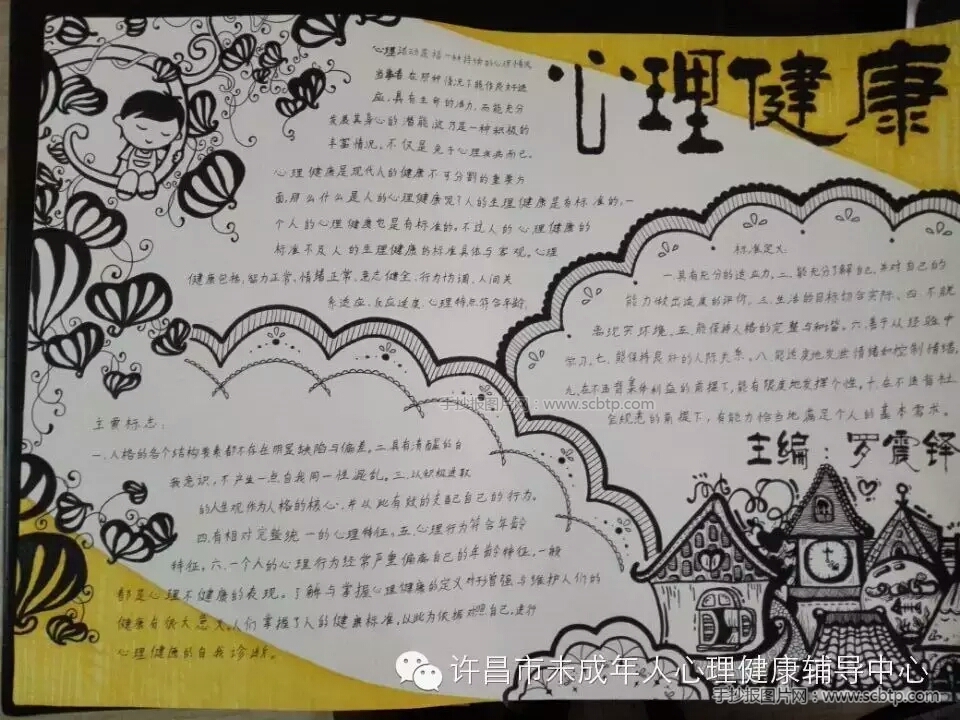 心理健康
心理活动是指一种持续的心理情况
当事者在那种情况下能作良好适
应,具有生命的活力,而能充分
发展其身心的潜能,这乃是一种积极的
丰富情况。不仅是免于心理疾病而已。
心理健康是现代人的健康不可分割的重要方
面,那么什么是人的心理健康呢?人的生理健康是有标准的,一
个人的心理健康也是有标准的。不过人的心理健康的
标准不及人的生理健康的标准具体与客观。心理
健康包括:智力正常、情绪正常、意志健全、行为协调、人间关
系适应、反应适度、心理特点符合年龄。
标准定义:
一.具有充分的适应力。二.能充分了解自己,并对自己的
能力做出适度的评价。三.生活的目标切合实际。四.不脱
离现实环境。五.能保持人格的完整与和谐。六.善于从经验中
学习。七.能保持良好的人际关系。八.能适度地发泄情绪和控制情绪。
九.在不违背集体利益的前提下,能有限度地发挥个性。十.在不违背社
会规范的前提下,有能力恰当地满足个人的基本需求。
手抄报图片网:www.scbtp.com
主编:罗震铎
主要标志:
一.人格的各个结构要素都不存在明显缺陷与偏差。二.具有清醒的自
我意识,不产生一点自我同一性混乱。三.以积极进取
的人生观作为人格的核心,并以此有效的支配自己的行为。
四.有相对完整统一的心理特征。五.心理行为符合年龄
特征。六.一个人的心理行为经常严重偏离自己的年龄特征,一般
都是心理不健康的表现。了解与掌握心理健康的定义对于增强与维护人们的
健康有很大意义。人们掌握了人的健康标准,以此为依据对照自己,进行
心理健康的自我诊断。
许昌市未成年人心理健康辅导中心
手抄报图片网:www.scbtp.com